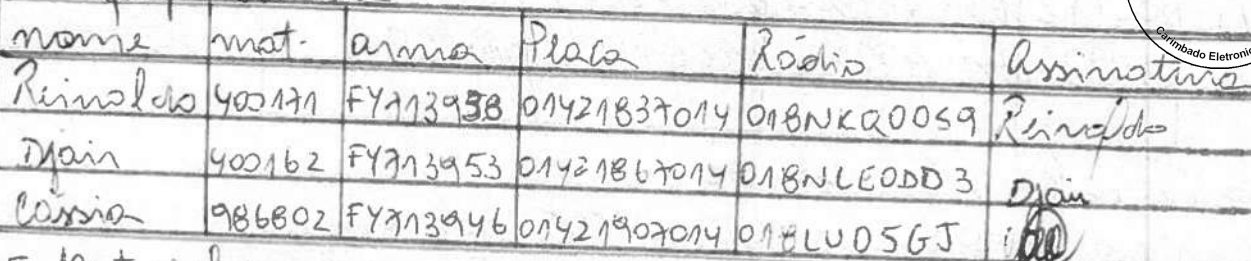 Carimbado Eletronic
nome mat. arma Placa Rádio Assinatura
Reinaldo 400171 FY713958 01421837014 018NKQ0059 Reinaldo
Djain 400162 FY713953 01421867014 018NLE0DD3 Djain
Cássio 986802 FY713946 01421907014 018LUD5GJ